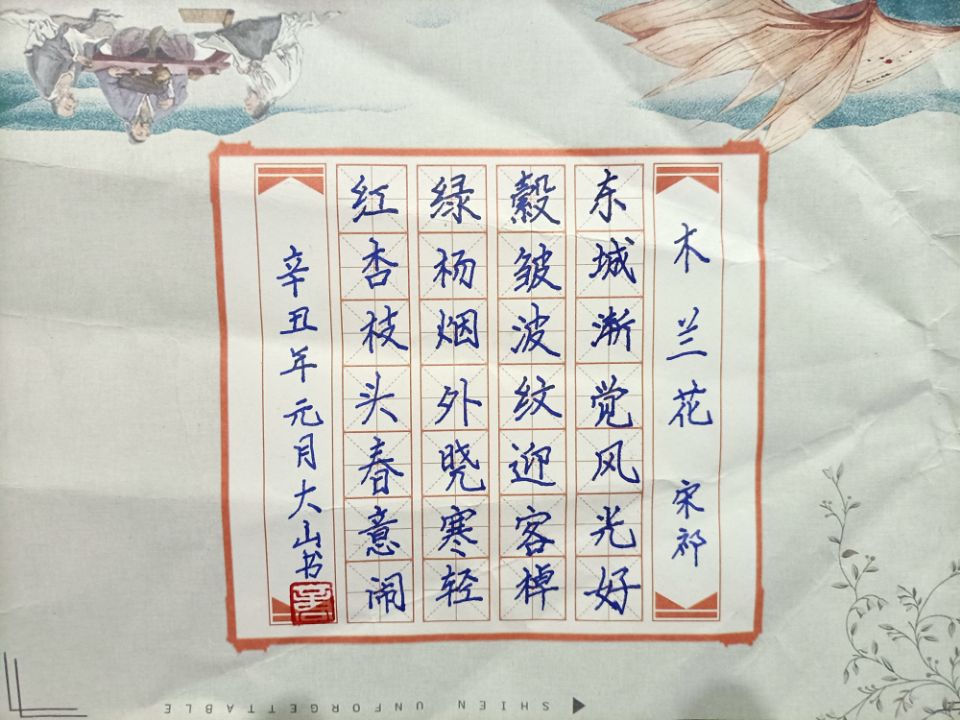 木兰花 宋祁
东城渐觉风光好
縠皱波纹迎客棹
绿杨烟外晓寒轻
红杏枝头春意闹
辛丑年元月大山书
SHIEN UNFORGETTABLE